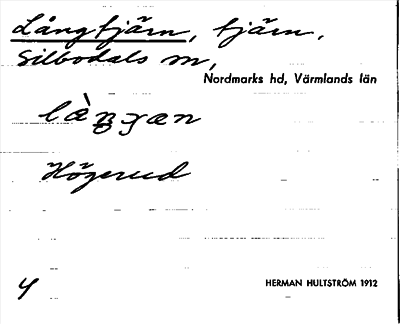 Långtjärn, tjärn,
Silbodals sn,
Nordmarks hd, Värmlands län
Högerud
4
HERMAN HULTSTRÖM 1912